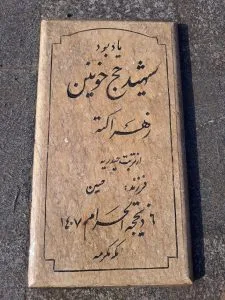 یادبود
شهید حج خونین
زهرا کنة
از تربت حیدریه
فرزند: حسین
۶ ذیحجة الحرام ۱۴۰۷
مکه مکرمه